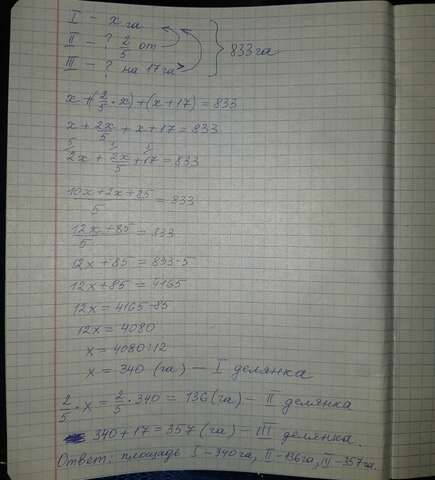 I – x га
II – ? 2/5 от
III – ? на 17 га >
} 833 га
x + (2/5 · x) + (x + 17) = 833
x + 2x/5 + x + 17 = 833
2x + 2x/5 + 17 = 833
(10x + 2x + 85)/5 = 833
(12x + 85)/5 = 833
12x + 85 = 833·5
12x + 85 = 4165
12x = 4165-85
12x = 4080
x = 4080:12
x = 340 (га) – I делянка
2/5 · x = 2/5 · 340 = 136 (га) – II делянка
340 + 17 = 357 (га) – III делянка.
Ответ: площадь I - 340 га, II - 136 га, III - 357 га.